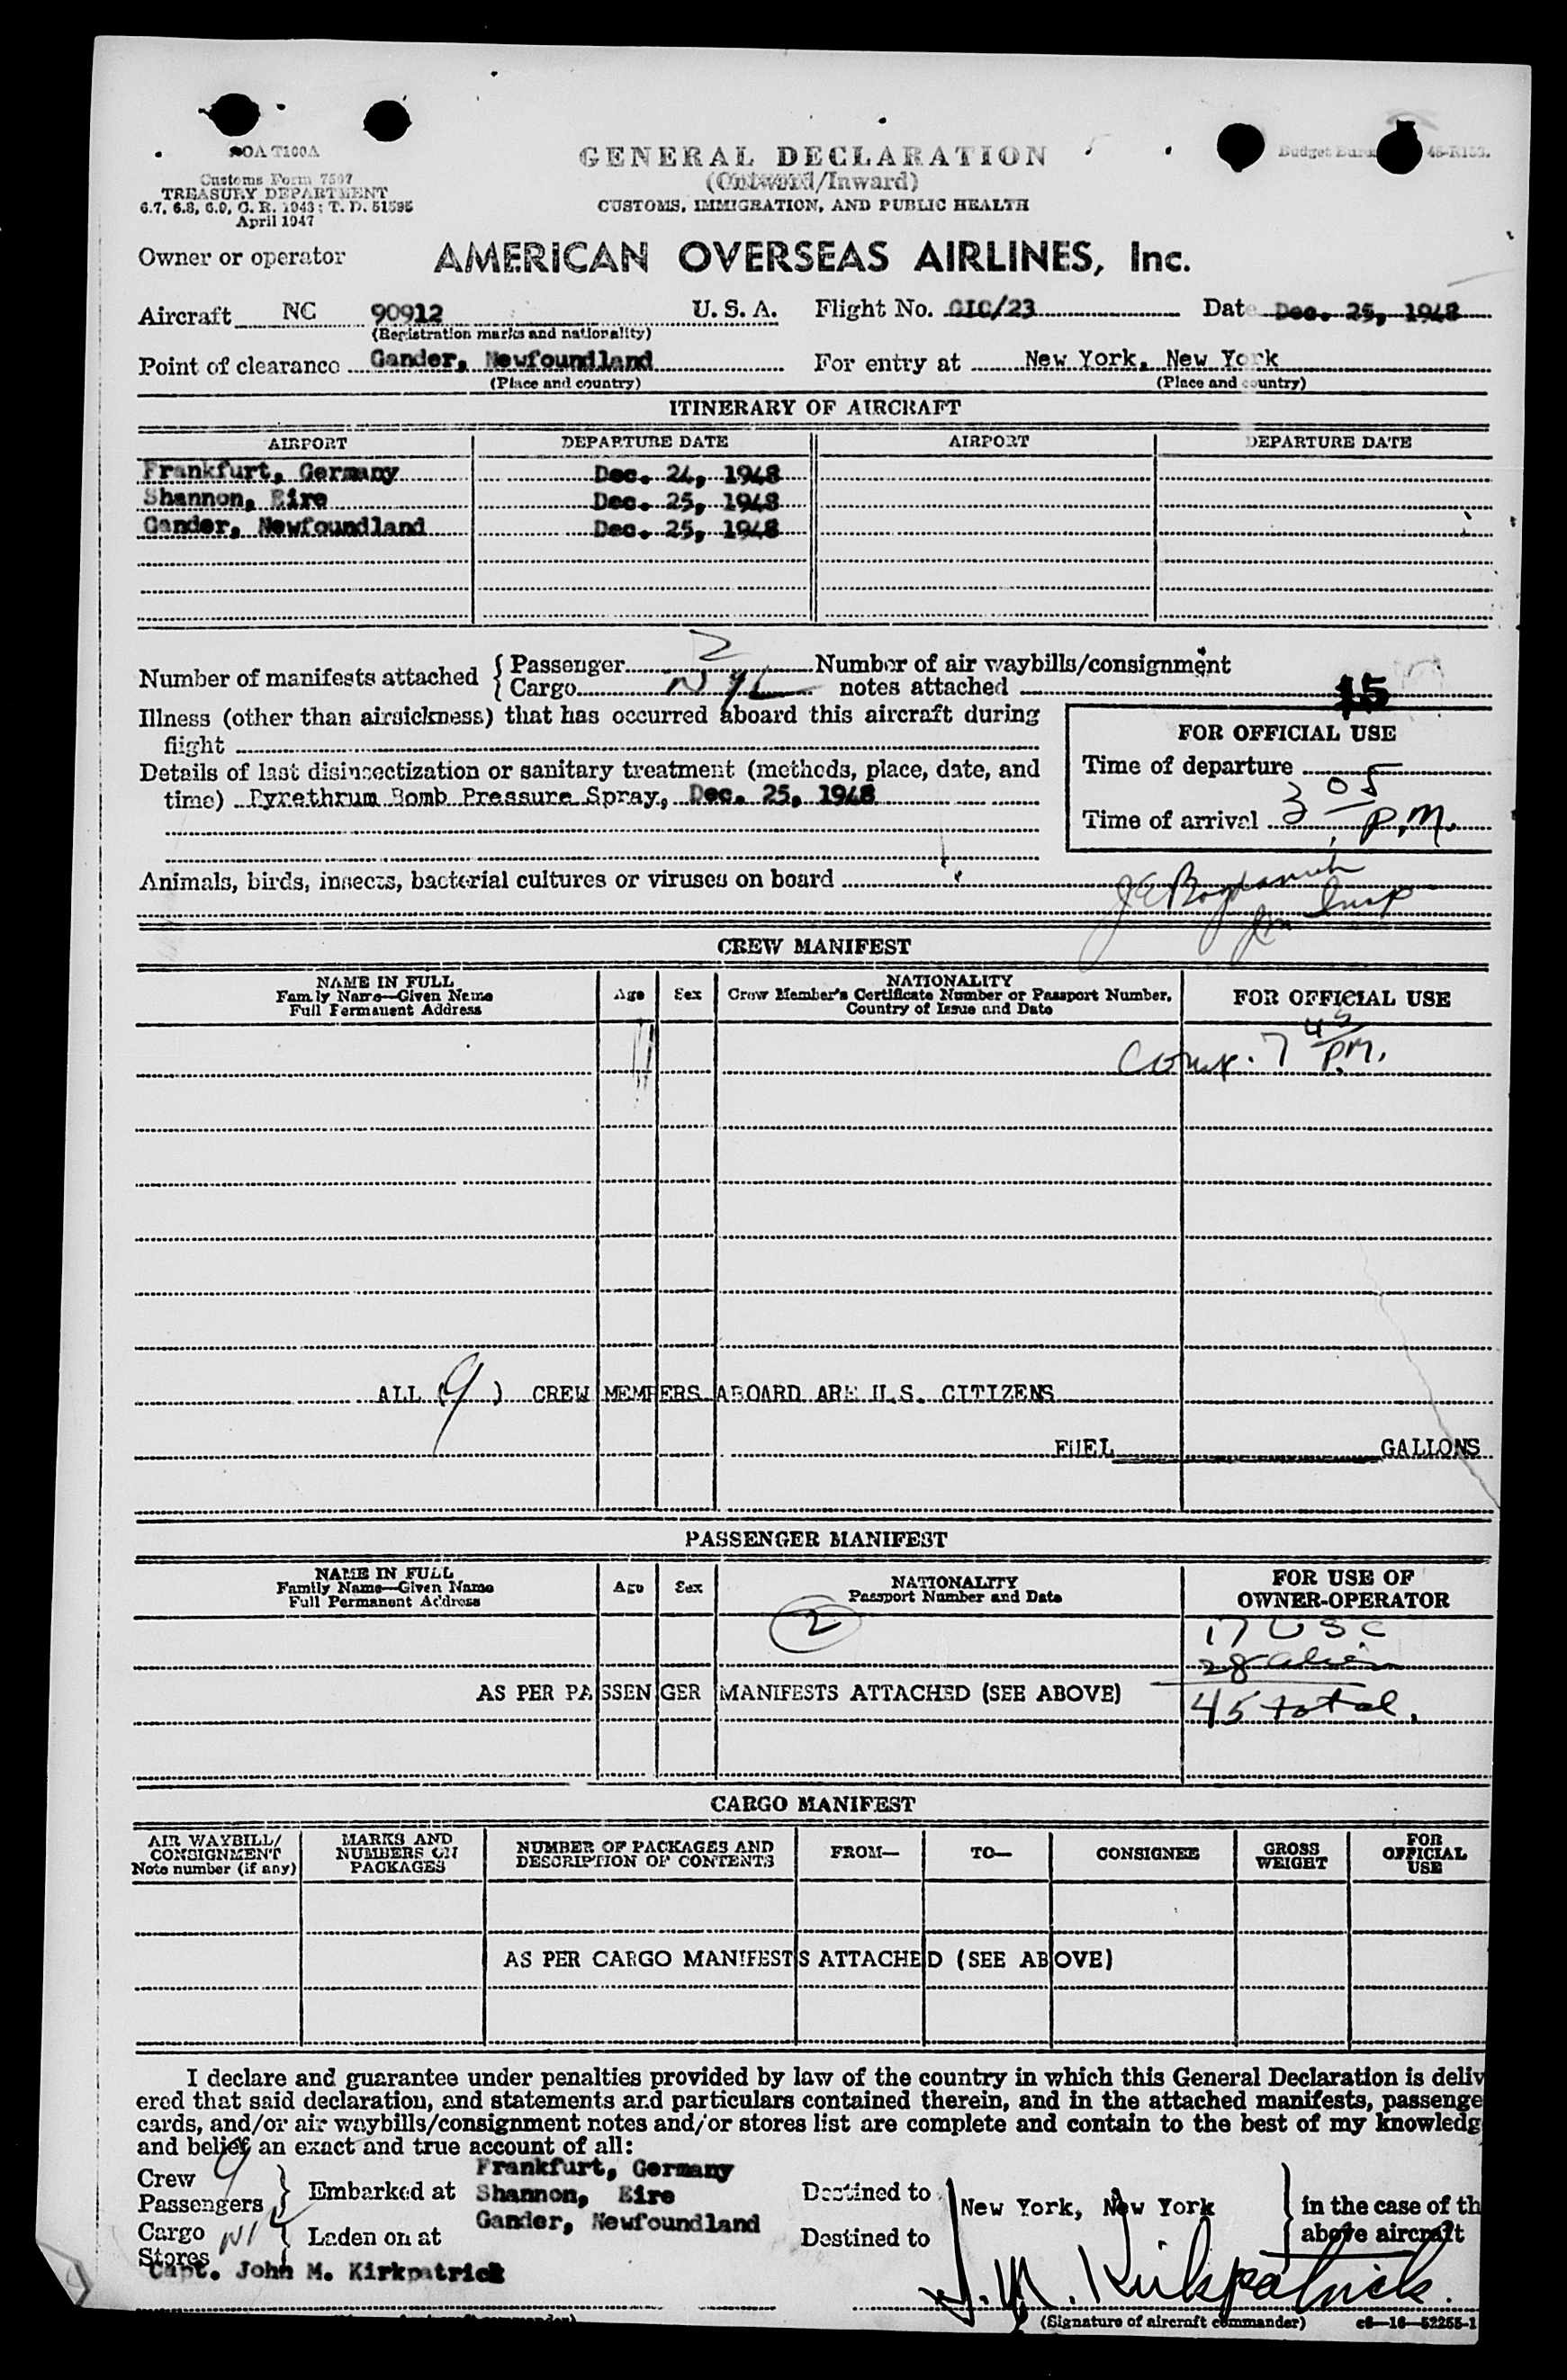 GENERAL DECLARATION
(Outward/Inward)
CUSTOMS, IMMIGRATION, AND PUBLIC HEALTH
Customs Form 7507
TREASURY DEPARTMENT
6.7, 6.8, 6.9, C. R. 1943; T. D. 51595
April 1947
Owner or operator AMERICAN OVERSEAS AIRLINES, Inc.
Aircraft NC 90912 U. S. A. Flight No. GIC/23 Date Dec. 25, 1948
(Registration marks and nationality)
Point of clearance Gander, Newfoundland For entry at New York, New York
(Place and country) (Place and country)
ITINERARY OF AIRCRAFT
AIRPORT DEPARTURE DATE AIRPORT DEPARTURE DATE
Frankfurt, Germany Dec. 24, 1948
Shannon, Eire Dec. 25, 1948
Gander, Newfoundland Dec. 25, 1948
Number of manifests attached { Passenger 2 Number of air waybills/consignment
Cargo NYL notes attached 15
Illness (other than airsickness) that has occurred aboard this aircraft during
flight
Details of last disinsectization or sanitary treatment (methods, place, date, and
time) Pyrethrum Bomb Pressure Spray, Dec. 25, 1948
FOR OFFICIAL USE
Time of departure
Time of arrival 3 05 P.M.
Animals, birds, insects, bacterial cultures or viruses on board
Insp
CREW MANIFEST
NAME IN FULL Age Sex NATIONALITY FOR OFFICIAL USE
Family Name—Given Name Crew Member's Certificate Number or Passport Number,
Full Permanent Address Country of Issue and Date
7 45 P.M.
ALL (9) CREW MEMBERS ABOARD ARE U.S. CITIZENS
FUEL GALLONS
PASSENGER MANIFEST
NAME IN FULL Age Sex NATIONALITY FOR USE OF
Family Name—Given Name Passport Number and Date OWNER-OPERATOR
Full Permanent Address
2 17 USC
28 alien
AS PER PASSENGER MANIFESTS ATTACHED (SEE ABOVE) 45 total.
CARGO MANIFEST
AIR WAYBILL/ MARKS AND NUMBER OF PACKAGES AND FROM— TO— CONSIGNEE GROSS FOR
CONSIGNMENT NUMBERS ON DESCRIPTION OF CONTENTS WEIGHT OFFICIAL
Note number (if any) PACKAGES USE
AS PER CARGO MANIFESTS ATTACHED (SEE ABOVE)
I declare and guarantee under penalties provided by law of the country in which this General Declaration is deliv
ered that said declaration, and statements and particulars contained therein, and in the attached manifests, passenge
cards, and/or air waybills/consignment notes and/or stores list are complete and contain to the best of my knowledg
and belief an exact and true account of all:
Crew 9 Frankfurt, Germany
Passengers } Embarked at Shannon, Eire Destined to New York, New York } in the case of th
Cargo Gander, Newfoundland above aircraft
Stores { Laden on at Destined to
Capt. John M. Kirkpatrick J. M. Kirkpatrick
(Signature of aircraft commander) c8—16—52255-1